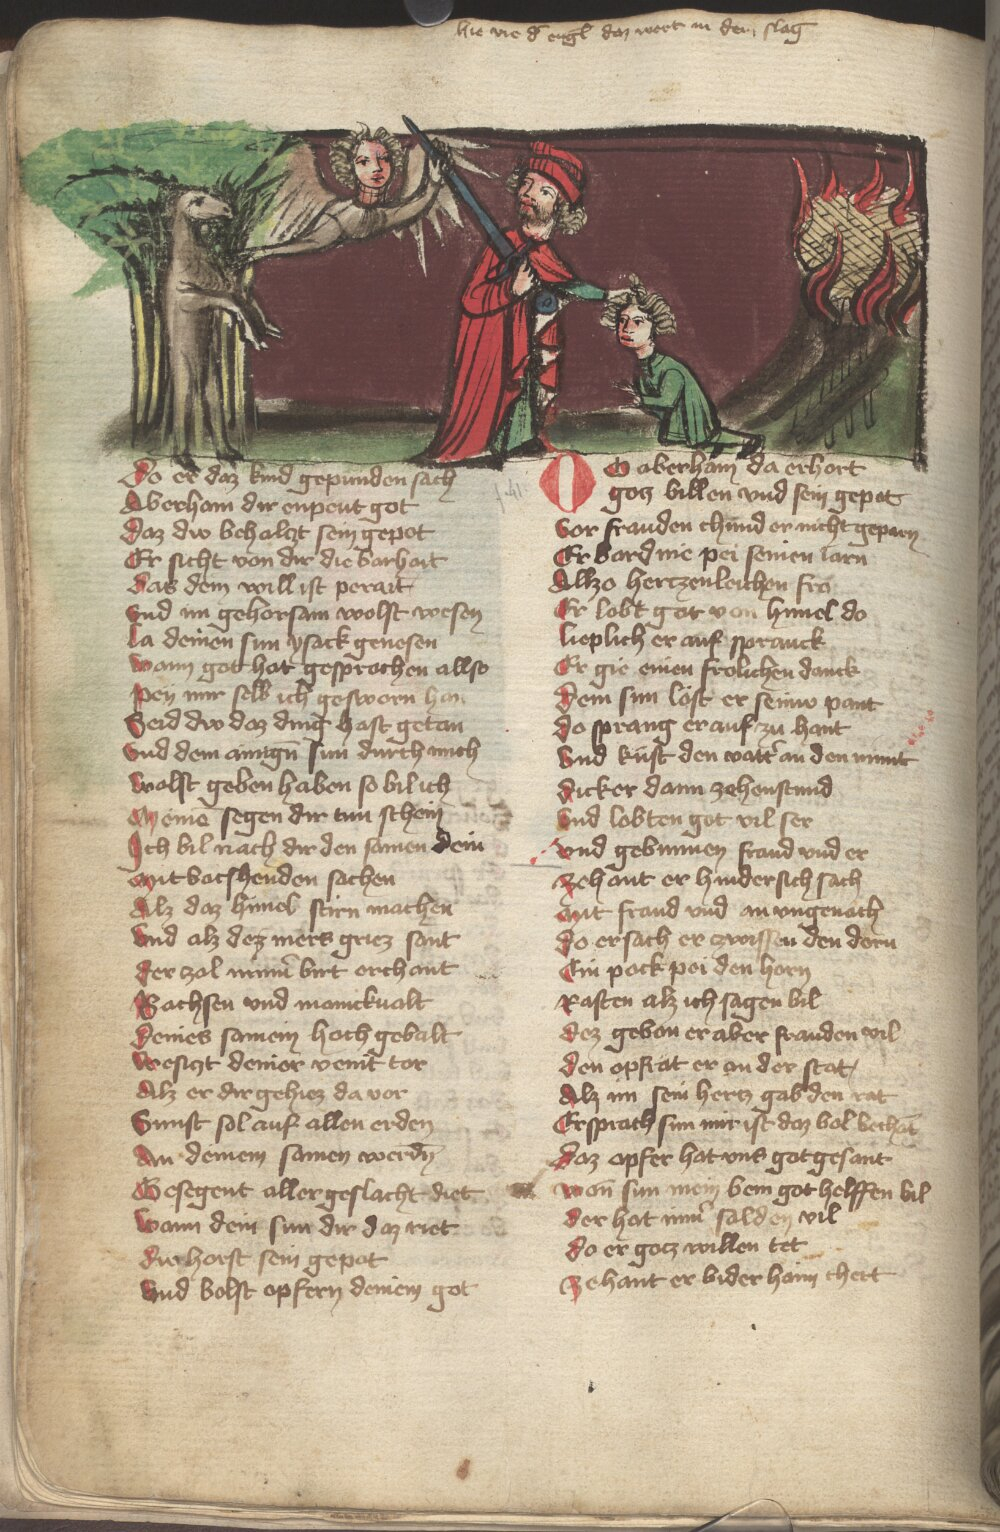 hie vie d engl daz wert in dem slag
Do er daz kind gepunden sach
Aberham dir enpeut got
daz dw behalczt sein gepot
Er sicht von dir die barhait
das dein will ist perait
Und im gehorsam wolst wesen
la deinen sun ysack genesen
wann got hat gesprochen allso
pey mir selb ich gesworn han
Seid dw daz ding hast getan
Und dem ainigñ sun durch mich
wolst geben haben so bil ich
Meinē segen dir tun schein
Ich bil nach dir den samen dein
mit bachsenden sachen
Alz daz himel stirn machen
Und alz dez mers griez sant
der zal nimm̄ birt erchant
Bachsen und manickualt
deines samem hoch gebalt
besiczt deiner veint tor
Alz er dir gehiez da vor
Sunst sol auf allen erden
An deinem samen werdñ
Gesegent aller geslacht diet
wann dein sun dir daz riet
die horst sein gepot
Und bolst opfern deinem got
Do aberham da erhort
gotz billen vnd sein gepot
Vor frauden chund er nicht geparn
Er bard nie pei seinen iarn
Allzo hertzenleichen fro
Er lobt got von himel do
lieplich er auf sprauck
Er gie einen frolichen danck
dem sun lost er seinw pant
do sprang er auf zu hant
Und kust den vatr̄ an den munt
dicker dann zehenstund
Und lobten got vil ser
vnd gebunnen fraud vnd er
zehant er hindersich sach
mit fraud vnd an vngemach
do ersach er czwissen den dorn
Ein pock pei den horn
Rasten alz ich sagen bil
dez geban er aber frauden vil
den opfrat er an der stat
Alz im sein hertz gab den rat
Er sprach sun mir ist daz bol bechāt
daz opfer hat vns got gesant
wan sun mein bem got helffen bil
der hat imm̄ salden vil
do er gotz willen tet
zehant er bider haim chert